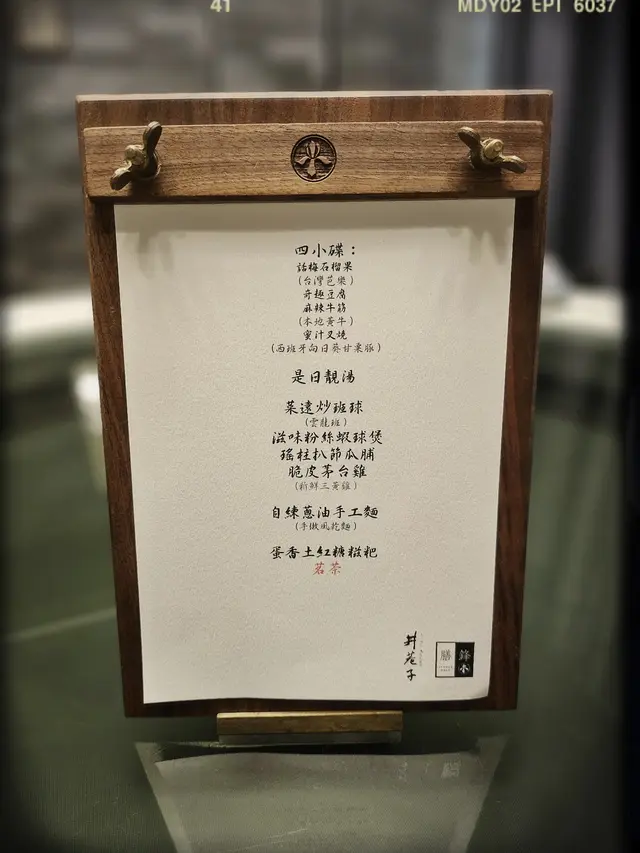 41
MDY02 EPT 6037
四小碟：
話梅石榴果
(台灣芭樂)
奇趣豆腐
麻辣牛筋
(本地黃牛)
蜜汁叉燒
(西班牙向日葵甘栗豚)
是日靚湯
菜遠炒班球
(雲龍班)
滋味粉絲蝦球煲
瑤柱扒節瓜脯
脆皮茅台雞
(新鮮三黃雞)
自煉蔥油手工麵
(手撖風乾麵)
蛋香土紅糖糍粑
茗茶
膳
鋒